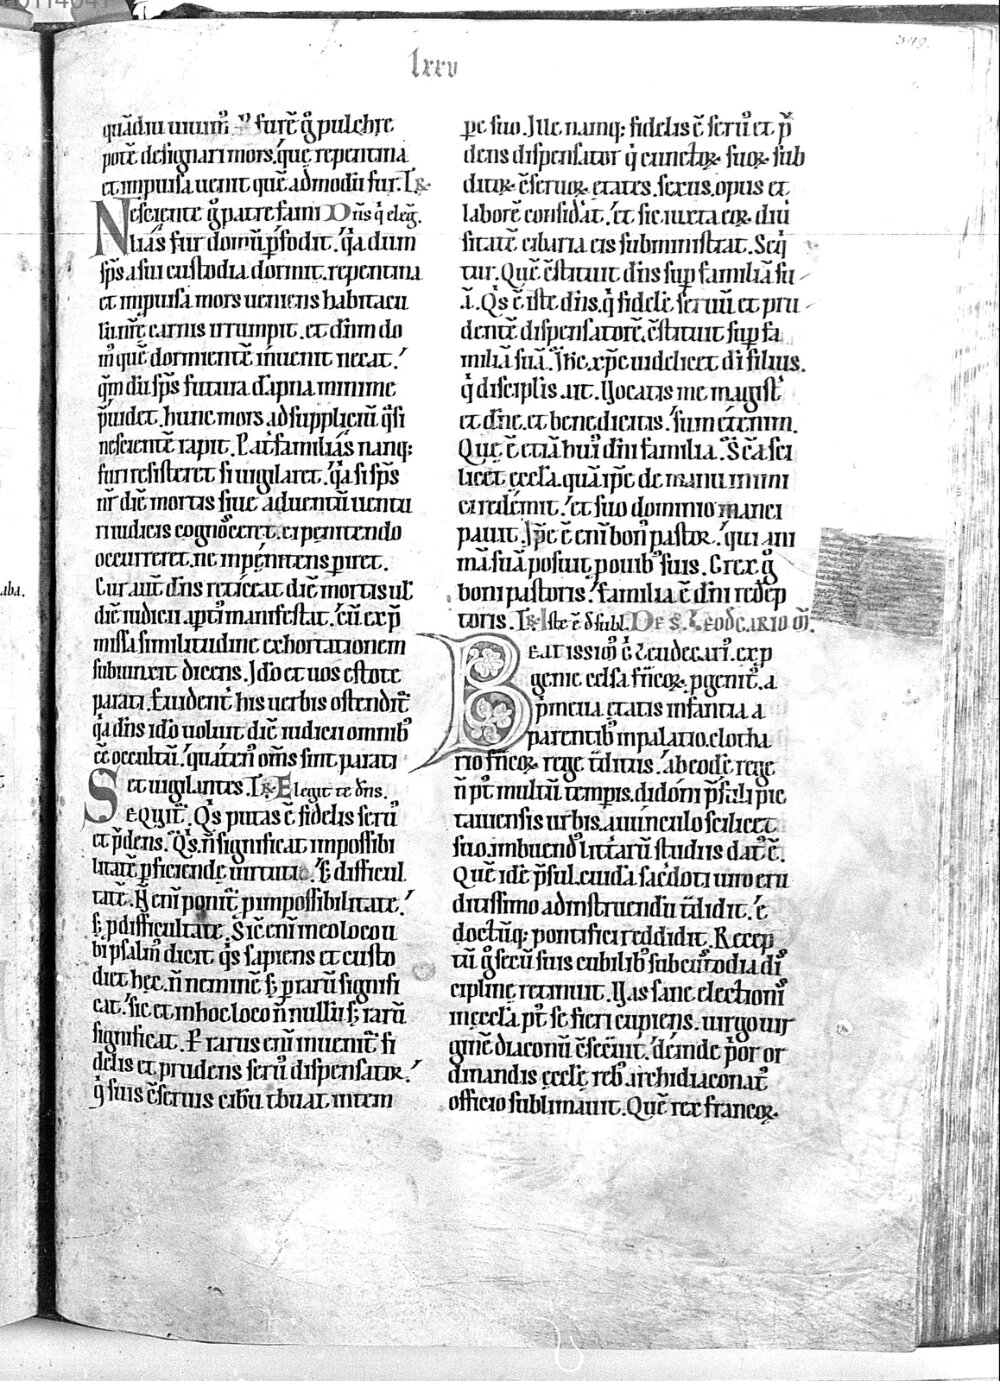 lxxv
349.
quādiu uiuim᷒ .. furē g̊ pulchre
potē designari mors. que repentina
et inpuisa uenit quē admodū fur. R̷.
Nesciente g̊ patre fami Dn̄s q̇ eleḡ.
lias fur domū ꝑfodit. q̇a dum
sp̄s a sui custodia dormit. repentina
et inpuisa mors ueniens habitacu
lū nr̄ę carnis irrumpit. et dn̄m do
m᷒ quē dormientē inuenit necat.
q̄m dū sp̄s futura dāpna minime
p̄uidet. hunc mors ad suppliciū q̇si
nescientē rapit. Pat̄ familias nanq;
furi resisteret si uigilaret. q̇a si sp̄s
nr̄ diē mortis siue aduentū uentu
ri iudicis cognosceret. ei penitendo
occurreret. ne inpenitens ꝑiret.
Cur aut̄ dn̄s reticeat diē mortis ut
diē iudicii apti᷒ manifestat. cū ex p̄
missa similitudine exhortationem
subiunxit dicens. Ido et uos estote
parati. Euident᷒ his uerbis ostendit᷒
q̇a dn̄s ido uoluit diē iudicii omnib᷒
eē occultū. quaten᷒ om̄s sint parati
et uigilantes. R̷. Elegit te dn̄s.
Sequit᷒. Q̇s putas ē fidelis seru᷒
et p̄dens. Q̇s. n̄ significat impossibi
litatē ꝑficiendę uirtutis. s; difficul
tatē. N̄ eni ponit᷒ ꝑ impossibilitate.
s; ꝑ difficultate. Sic eni in eo loco u
bi psalm᷒ dicit q̇s sapiens et custo
diet hęc. n̄ neminē s; ꝑrarū signifi
cat. sic et in hoc loco n̄ nullū s; rarū
significat. P᷒ rarus eni inuenit᷒ fi
delis et prudens seru᷒ dispensator.
q̇ suis ꝯseruis cibū tribuat in tem
pe suo. Ille namq; fidelis ē seru᷒ et p̄
dens dispensator q̇ cunctoꝝ suoꝝ sub
ditoꝝ ꝯseruoꝝ etates. sexus. opus et
laborē considat. et sic iuxta eoꝝ diu
sitatē cibaria eis subministrat. Seq̇
tur. Quē ꝯstituit dn̄s sup familiā su
ā. Q̇s ē iste dn̄s. q̇ fidelē seruū et pru
dentē dispensatorē. ꝯstituit sup fa
miliā suā. Ihc xp̄c uidelicet di filius.
q̇ disciplis ait. Uocatis me magist᷒
et dn̄e. et bene dicitis. sum etenim.
Que ē etiā hui᷒ dn̄i familia. Scā sci
licet ęccła. quā ip̄e de manu inimi
ci redemit. et suo dominio manci
pauit. Ip̄e ē eni bon᷒ pastor. qui ani
mā suā posuit pouib᷒ suis. Grex g̊
boni pastoris. familia ē dn̄i redep
toris. R̷. Iste ē d subl. De S. Leodegario m̄.
Beatissim᷒ g̊ Leudegari᷒. exp
genie celsa frācoꝝ ꝓgenit᷒. a
primeua etatis infantia a
parentib᷒ in palatio clotha
rio francoꝝ rege tradit᷒. ab eodē rege
n̄ p᷒ multū temꝑis. didoni p̄suli pic
tauensis urbis. auunculo scilicet
suo. imbuend᷒ litterarū studiis dat᷒ ē.
Quē idē p̄sul. cuidā sacdoti uiro eru
ditissimo ad instruendū tradidit. &
doctūq; pontifici reddidit. Recep
tū g̊ secū suis cubilib᷒ sub custodia di
sciplinę retinuit. Uas sane electioni᷒
in ęccła. pt se fieri cupiens. uirgo uir
ginē diaconū ꝯsecrauit. deinde p̊or or
dinandis ęcclę reb᷒ archidiaconat᷒
officio sublimauit. Quē rex francoꝝ
aba.